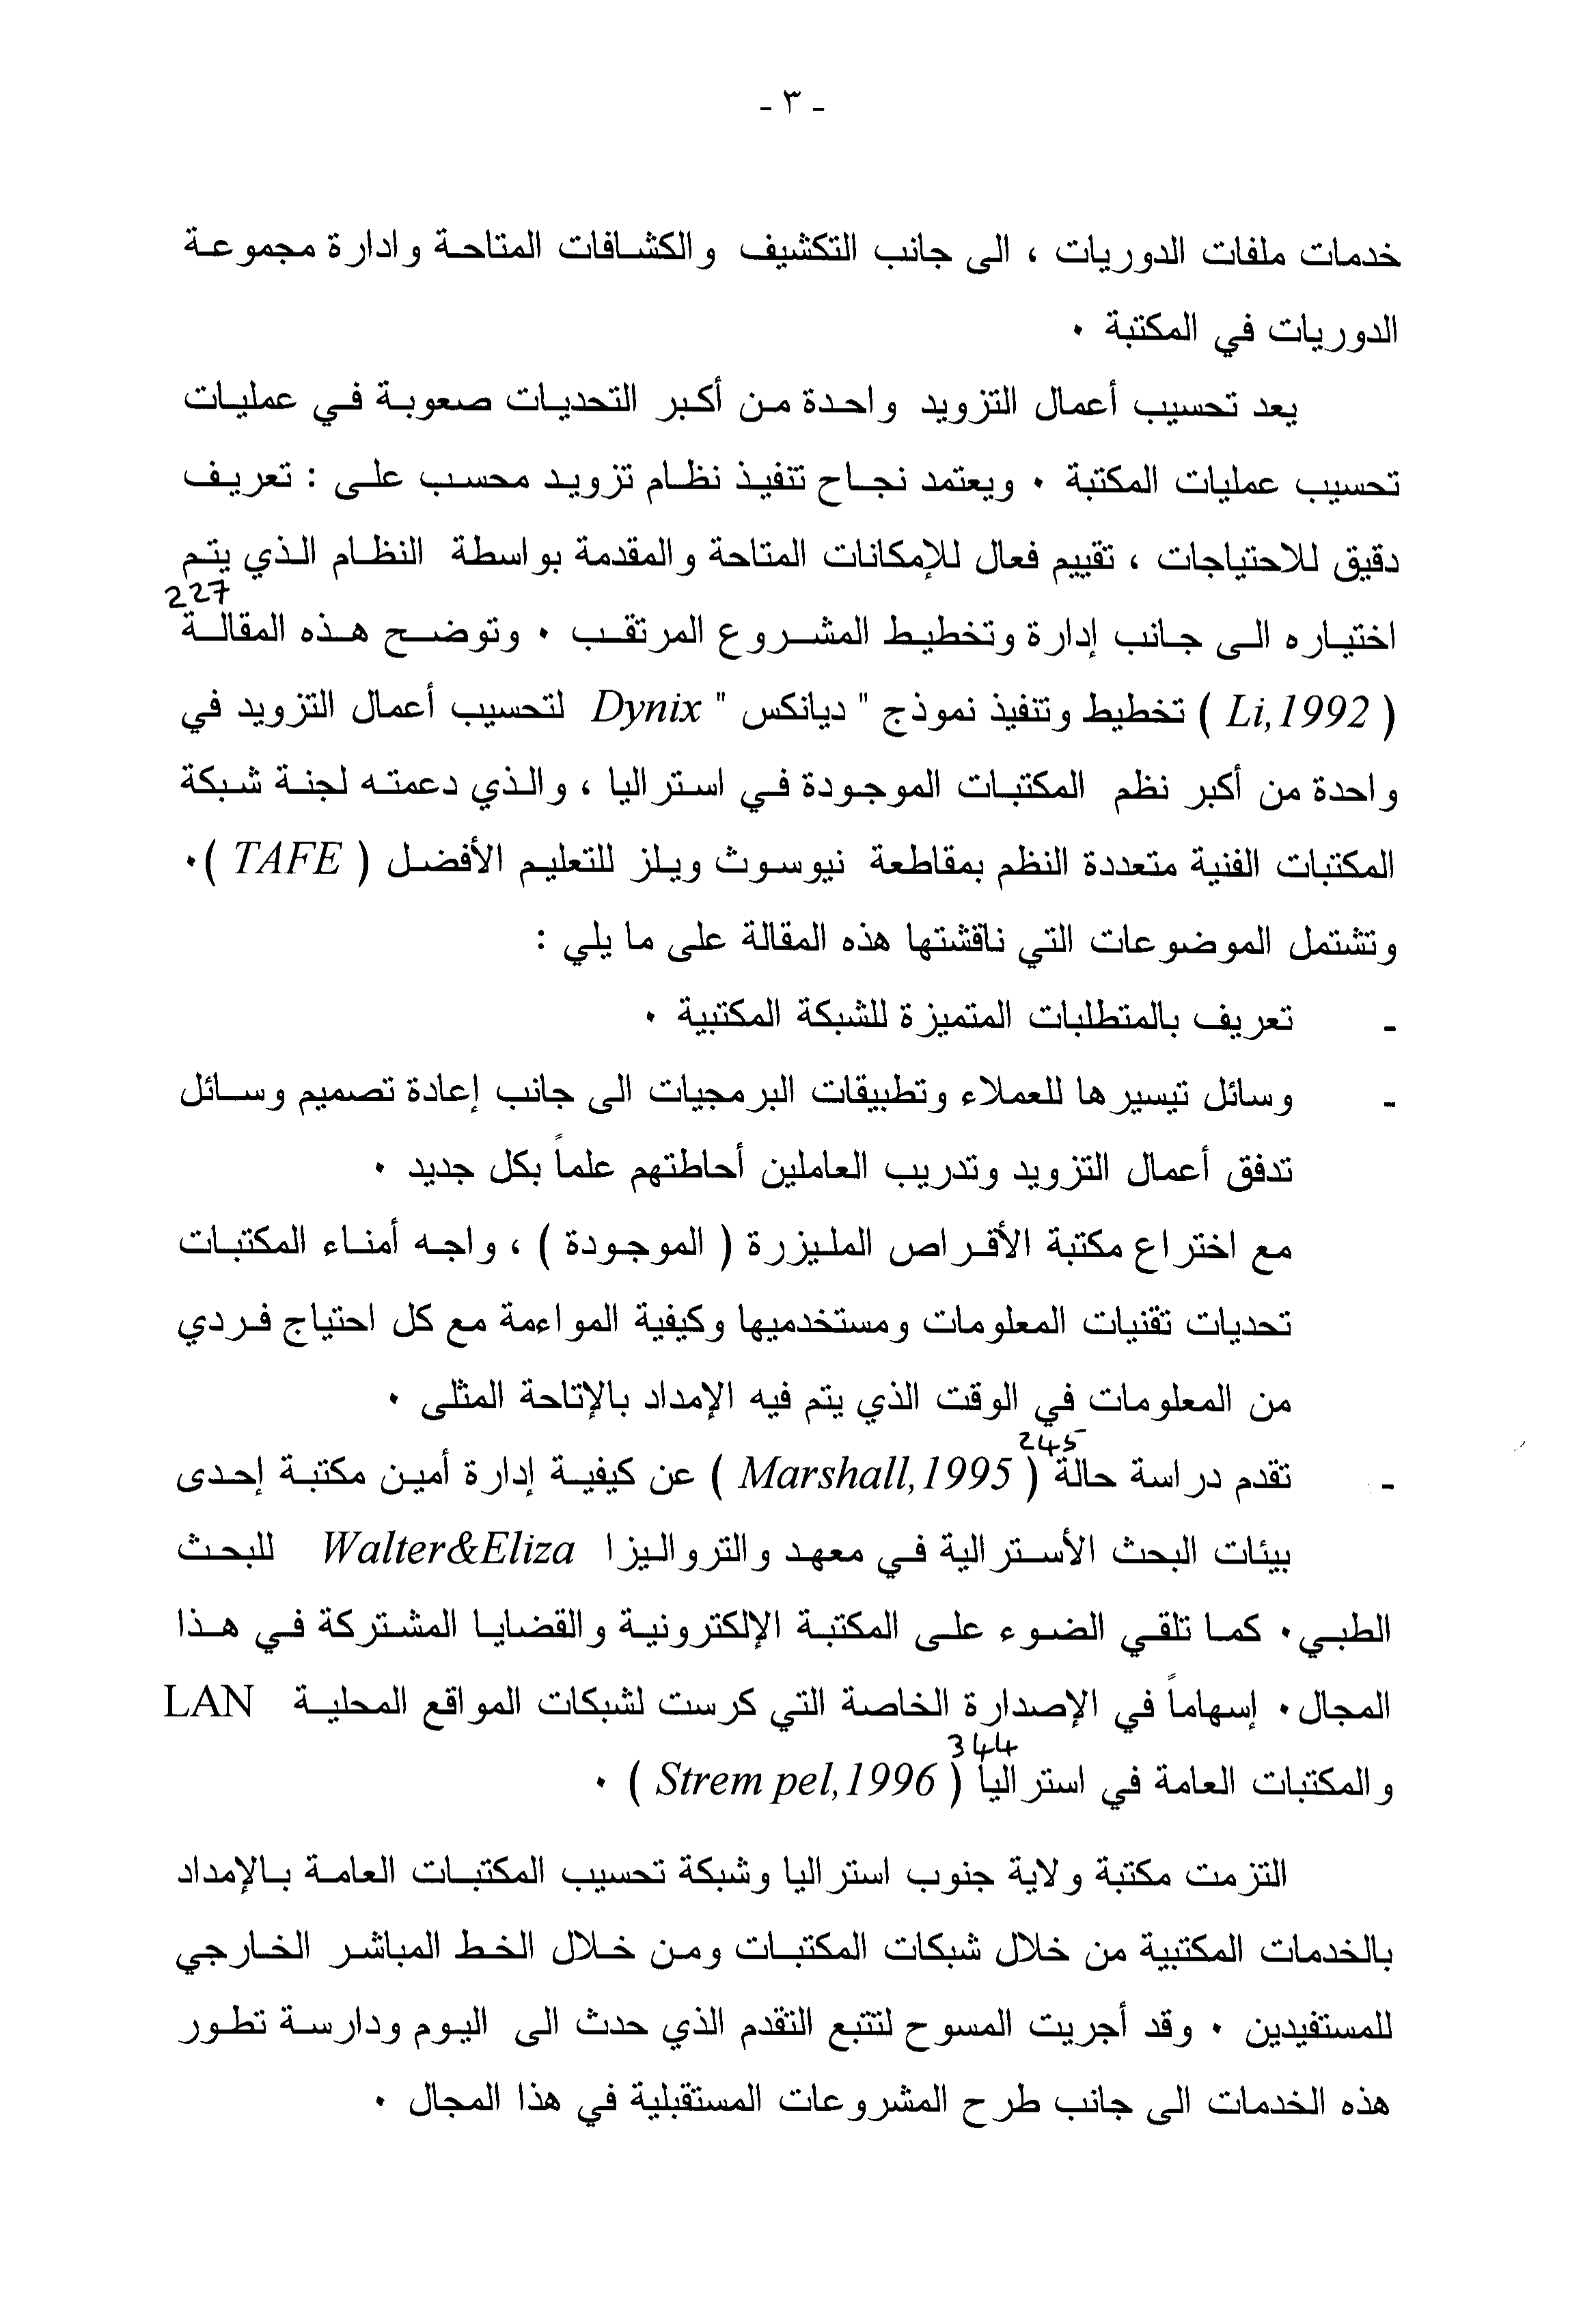 - ٣ -
خدمات ملفات الدوريات ، الى جانب التكشيف والكشافات المتاحة وادارة مجموعة
الدوريات في المكتبة ٠
يعد تحسيب أعمال التزويد واحدة من أكبر التحديات صعوبة في عمليات
تحسيب عمليات المكتبة ٠ ويعتمد نجاح تنفيذ نظام تزويد محسب على : تعريف
دقيق للاحتياجات ، تقييم فعال للإمكانات المتاحة والمقدمة بواسطة النظام الذي يتم
227
اختياره الى جانب إدارة وتخطيط المشروع المرتقب ٠ وتوضح هذه المقالة
( Li,1992 ) تخطيط وتنفيذ نموذج " ديانكس " Dynix لتحسيب أعمال التزويد في
واحدة من أكبر نظم المكتبات الموجودة في استراليا ، والذي دعمته لجنة شبكة
المكتبات الفنية متعددة النظم بمقاطعة نيوسوث ويلز للتعليم الأفضل ( TAFE )٠
وتشتمل الموضوعات التي ناقشتها هذه المقالة على ما يلي :
- تعريف بالمتطلبات المتميزة للشبكة المكتبية ٠
- وسائل تيسيرها للعملاء وتطبيقات البرمجيات الى جانب إعادة تصميم وسائل
تدفق أعمال التزويد وتدريب العاملين أحاطتهم علماً بكل جديد ٠
مع اختراع مكتبة الأقراص المليزرة ( الموجودة ) ، واجه أمناء المكتبات
تحديات تقنيات المعلومات ومستخدميها وكيفية المواءمة مع كل احتياج فردي
من المعلومات في الوقت الذي يتم فيه الإمداد بالإتاحة المثلى ٠
245
- تقدم دراسة حالة ( Marshall,1995 ) عن كيفية إدارة أمين مكتبة إحدى
بيئات البحث الأسترالية في معهد والترواليزا Walter&Eliza للبحث
الطبي٠ كما تلقي الضوء على المكتبة الإلكترونية والقضايا المشتركة في هذا
المجال٠ إسهاماً في الإصدارة الخاصة التي كرست لشبكات المواقع المحلية LAN
344
والمكتبات العامة في استراليا ( Strem pel,1996 ) ٠
التزمت مكتبة ولاية جنوب استراليا وشبكة تحسيب المكتبات العامة بالإمداد
بالخدمات المكتبية من خلال شبكات المكتبات ومن خلال الخط المباشر الخارجي
للمستفيدين ٠ وقد أجريت المسوح لتتبع التقدم الذي حدث الى اليوم ودارسة تطور
هذه الخدمات الى جانب طرح المشروعات المستقبلية في هذا المجال ٠